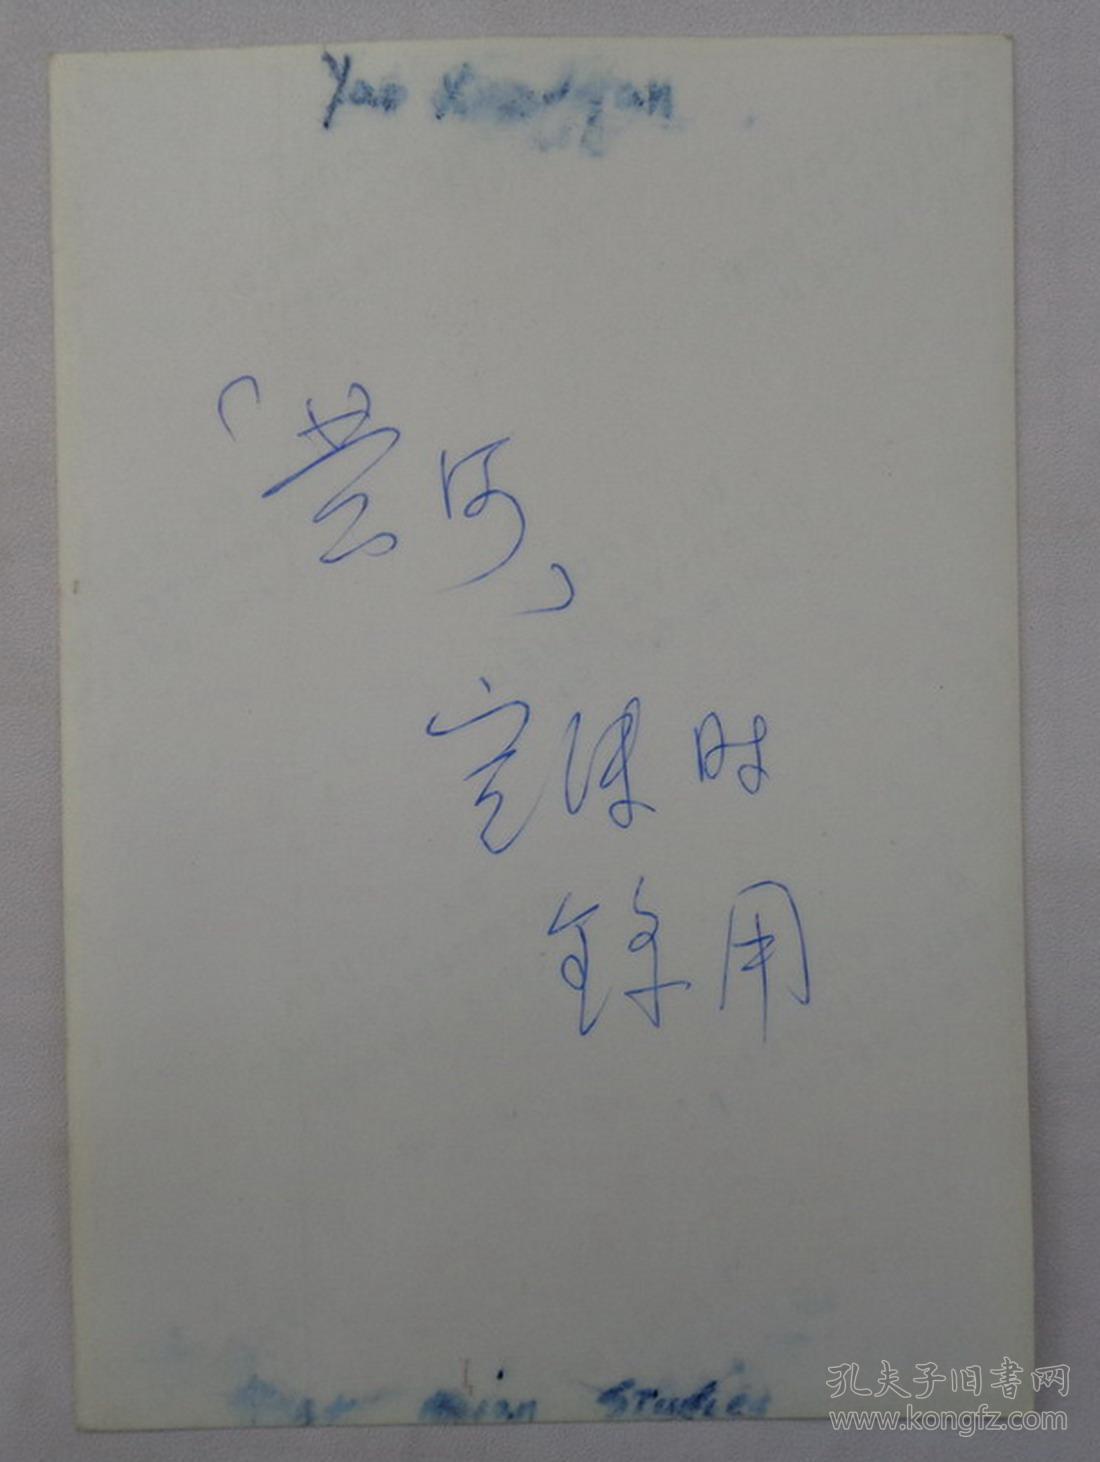 Yao
「芸阿」
定課时
録用
Asian Studies
孔夫子旧书网
www.kongfz.com